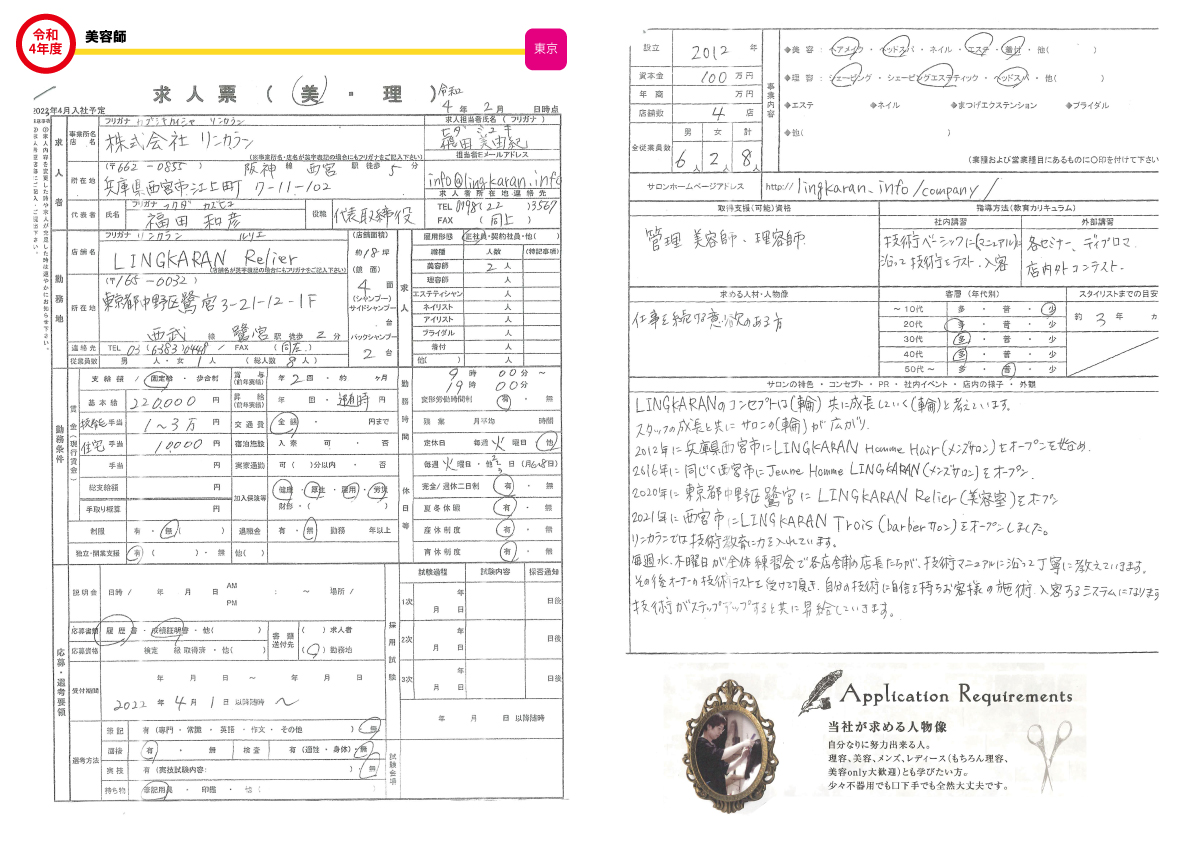 令和
4年度
美容師
東京
求 人 票 ( 美 ・ 理 )
令和 4 年 2 月 日時点
2022年4月入社予定
求人者
事業所名
店名
フリガナ リンカラン
株式会社 リンカラン
(※事業所名・店名が英字表記の場合にもフリガナをご記入下さい)
求人担当者氏名(フリガナ)
福田 美由紀
担当者Eメールアドレス
info@lingkaran.info
所在地
(〒662-0855) 阪神 線 西宮 駅 徒歩 5 分
兵庫県西宮市江上町 7-11-102
求人者所在地連絡先
TEL 0798(22)3567
FAX ( 同上 )
代表者
氏名
フリガナ フクダ カズヒコ
福田 和彦
役職
代表取締役
勤務地
店舗名
フリガナ リンカラン ルリエ
LINGKARAN Relier
(店舗名が英字表記の場合にもフリガナをご記入下さい)
(店舗面積)
約 18 坪
(鏡 面)
4 面
(シャンプー)
サイドシャンプー
台
バックシャンプー
2 台
所在地
(〒165-0032)
東京都中野区鷺宮3-21-12-1F
西武 線 鷺宮 駅 徒歩 2 分
連絡先
TEL 03(6383)0448 / FAX ( 同左 )
従業員数
男 人・女 1 人 ( 総人数 8 人)
求人
雇用形態 正社員・契約社員・他( )
職種 人数 (特記事項)
美容師 2 人
理容師 人
エステティシャン 人
ネイリスト 人
アイリスト 人
ブライダル 人
着付 人
他( ) 人
勤務条件
賃金(現行賃金)
支給額 / 固定給 ・ 歩合制
基本給 220,000 円
技術給 手当 1~3万 円
住宅 手当 10,000 円
手当 円
総支給額 円
手取り概算 円
制限 有 ・ 無 ( )
独立・開業支援 有 ( )・ 無
賞与
(前年実績)
年 2 回 ・ 約 ヶ月
昇給
(前年実績)
年 回 ・ 随時 円
交通費 全額 ・ 円まで
宿泊施設 入寮 可 ・ 否
実家通勤 可 ( )分以内 ・ 否
加入保険等 健康 ・ 厚生 ・ 雇用 ・ 労災
財形 ・ ( )
退職金 有 ・ 無 勤務 年以上
他( )
勤務時間
9 時 00 分 ~
19 時 00 分
変形労働時間制 有 ・ 無
残業 月平均 時間
休日等
定休日 毎週 火 曜日 ・ 他
毎週 火 曜日 ・ 他 2,3 日 (月6~8日)
完全/週休二日制 有 ・ 無
夏冬休暇 有 ・ 無
産休制度 有 ・ 無
育休制度 有 ・ 無
応募・選考要領
説明会 日時 / 年 月 日 AM PM : ~ 場所 /
応募書類 履歴書 ・ 成績証明書 ・ 他( )
応募資格 検定 級 取得済 ・ 他( )
書類送付先
( )求人者
(○)勤務地
受付期間
年 月 日 ~ 年 月 日
2022 年 4 月 1 日 以降随時 ~
選考方法
筆記 有 (専門 ・ 常識 ・ 英語 ・ 作文 ・ その他 )・ 無
面接 有 ・ 無 検査 有 (適性 ・ 身体)・ 無
実技 有 (実技試験内容: )・ 無
持ち物 筆記用具 ・ 印鑑 ・ 他( )
採用試験
試験過程 試験内容 採否通知
1次 年 月 日 日後
2次 年 月 日 日後
3次 年 月 日 日後
年 月 日 以降随時
試験会場
設立 2012 年
資本金 100 万円
年商 万円
店舗数 4 店
全従業員数
男 女 計
6人 2人 8人
事業内容
◆美容: ヘアメイク ・ ヘッドスパ ・ ネイル ・ エステ ・ 着付 ・ 他( )
◆理容: シェービング ・ シェービングエステティック ・ ヘッドスパ ・ 他( )
◆エステ ◆ネイル ◆まつげエクステンション ◆ブライダル
◆他( )
(業種および営業種目にあるものに〇印を付けて下さい
サロンホームページアドレス http://lingkaran.info/company/
取得支援(可能)資格
管理美容師・理容師
指導方法(教育カリキュラム)
社内講習
技術ベーシックに(マニュアル)に
沿って技術をテスト、入客
外部講習
各セミナー、ディプロマ
店内外コンテスト.
求める人材・人物像
仕事を続ける意欲のある方
客層(年代別)
~10代 多 ・ 普 ・ 少
20代 多 ・ 普 ・ 少
30代 多 ・ 普 ・ 少
40代 多 ・ 普 ・ 少
50代~ 多 ・ 普 ・ 少
スタイリストまでの目安
約 3 年 ヵ
サロンの特色 ・ コンセプト ・ PR ・ 社内イベント ・ 店内の様子 ・ 外観
LINGKARANのコンセプトは(輪) 共に成長していく(輪)と考えています.
スタッフの成長と共にサロンの(輪)が広がり.
2012年に兵庫県西宮市にLINGKARAN Homme Hair(メンズサロン)をオープンを始め.
2016年に同じく西宮市にJeune Homme LINGKARAN(メンズサロン)をオープン.
2020年に東京都中野区鷺宮にLINGKARAN Relier(美容室)をオープン
2021年に西宮市にLINGKARAN Trois(barberサロン)をオープンしました。
リンカランでは技術教育に力を入れています.
毎週水、木曜日が全体練習会で各店舗の店長たちが、技術マニュアルに沿って丁寧に教えていきます.
その後オーナーが技術テストを受けて頂き、自分の技術に自信を持ちお客様の施術、入客するシステムになります
技術がステップアップすると共に昇給していきます.
Application Requirements
当社が求める人物像
自分なりに努力出来る人。
理容、美容、メンズ、レディース(もちろん理容、
美容only大歓迎)とも学びたい方。
少々不器用でも口下手でも全然大丈夫です。